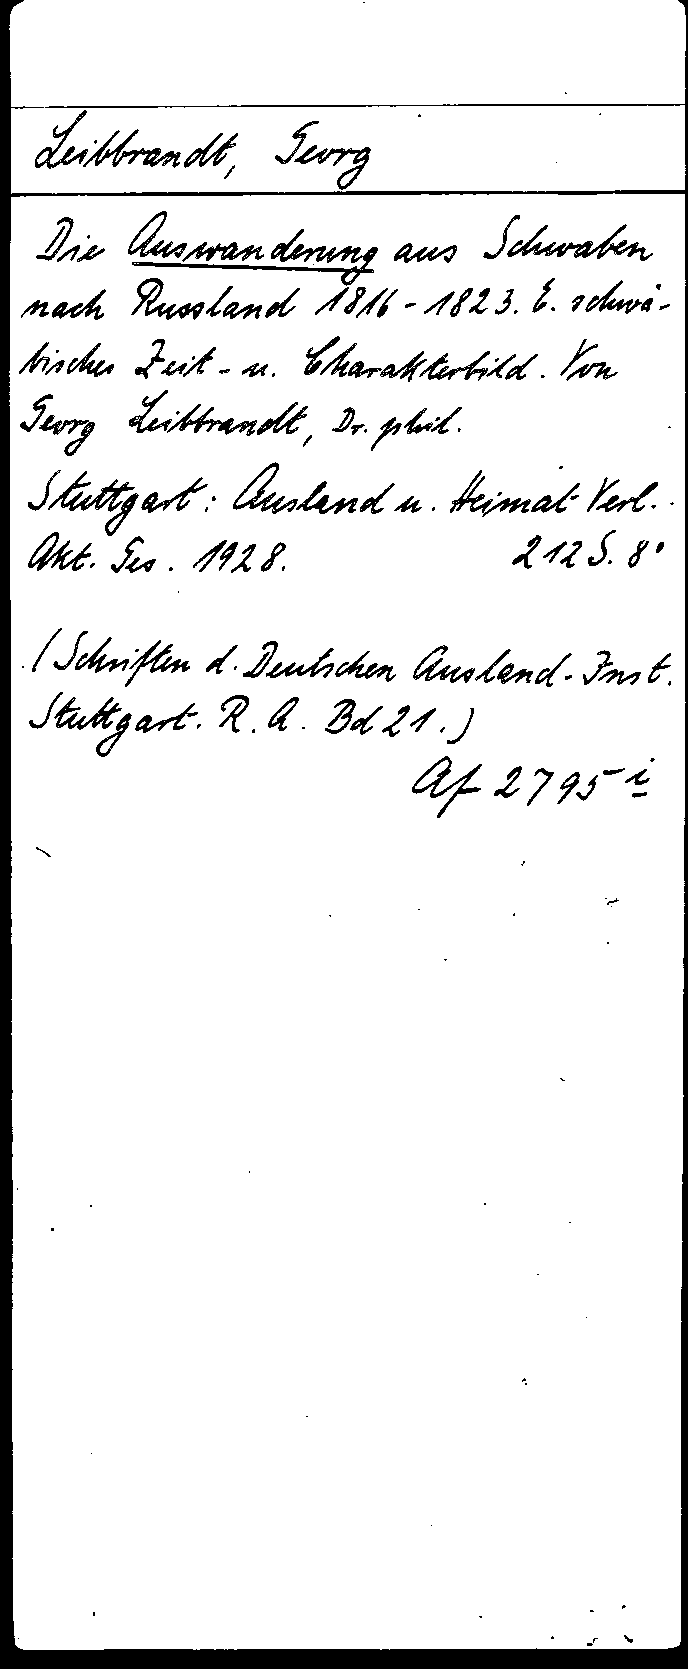 Leibbrandt, Georg
Die Auswanderung aus Schwaben
nach Russland 1816-1823. E. schwä-
bisches Zeit- u. Charakterbild. Von
Georg Leibbrandt, Dr. phil.
Stuttgart: Ausland u. Heimat Verl.
Akt. Ges. 1928. 212 S. 8°
(Schriften d. Deutschen Ausland-Inst.
Stuttgart. R. A. Bd 21.)
Af 2795 i